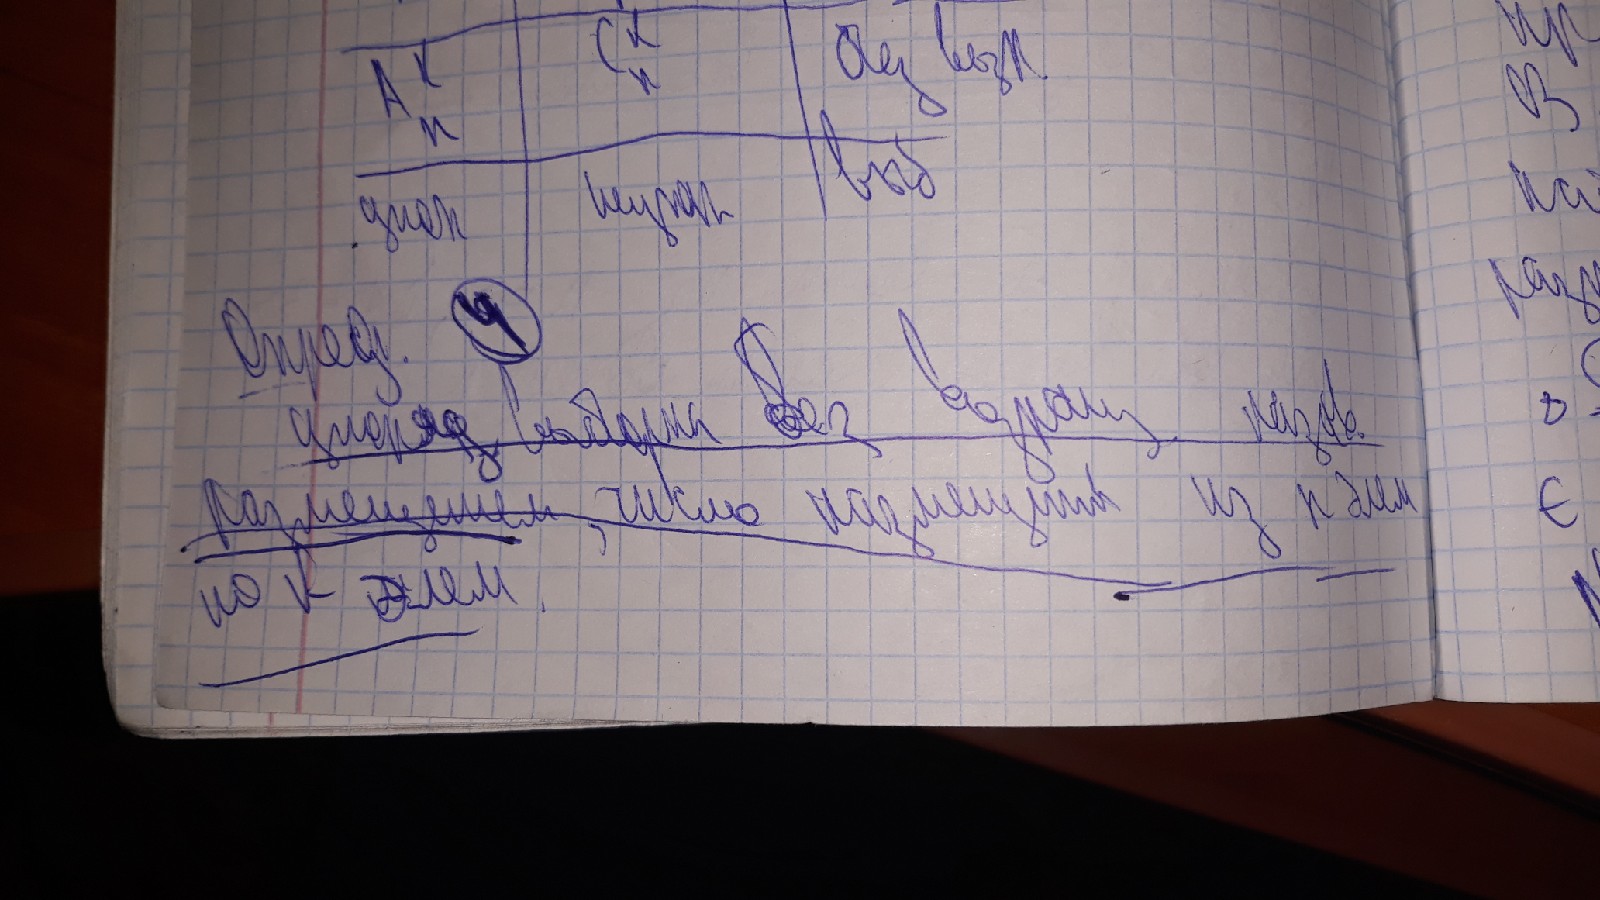 A k n C k n без возв.
упор неупор выб
Опред. 4
упоряд выборка без возвращ. назыв.
размещением, число размещений из n элем
по k элем.